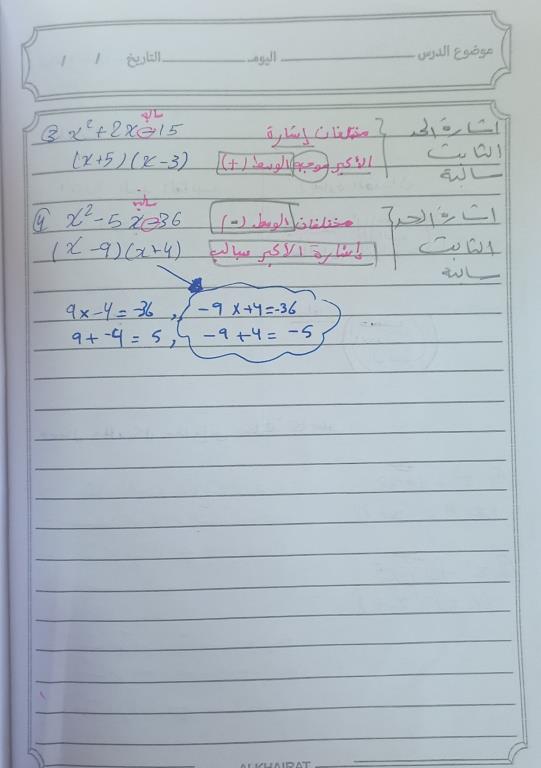 موضوع الدرس ــــــــ اليوم ــــــــ التاريخ / /
سالبة
③ x² + 2x - 15 مختلفان إشارة } إشارة الحد
(x+5)(x-3) الأكبر موجبة الوسط (+) الثابت
سالبة
سالبة
④ x² - 5x - 36 مختلفان الوسط (-) } إشارة الحد
(x-9)(x+4) إشارة الأكبر سالب الثابت
سالبة
9x-4=-36 , -9x+4=-36
9+-4=5 , -9+4=-5
ALKHAIRAT